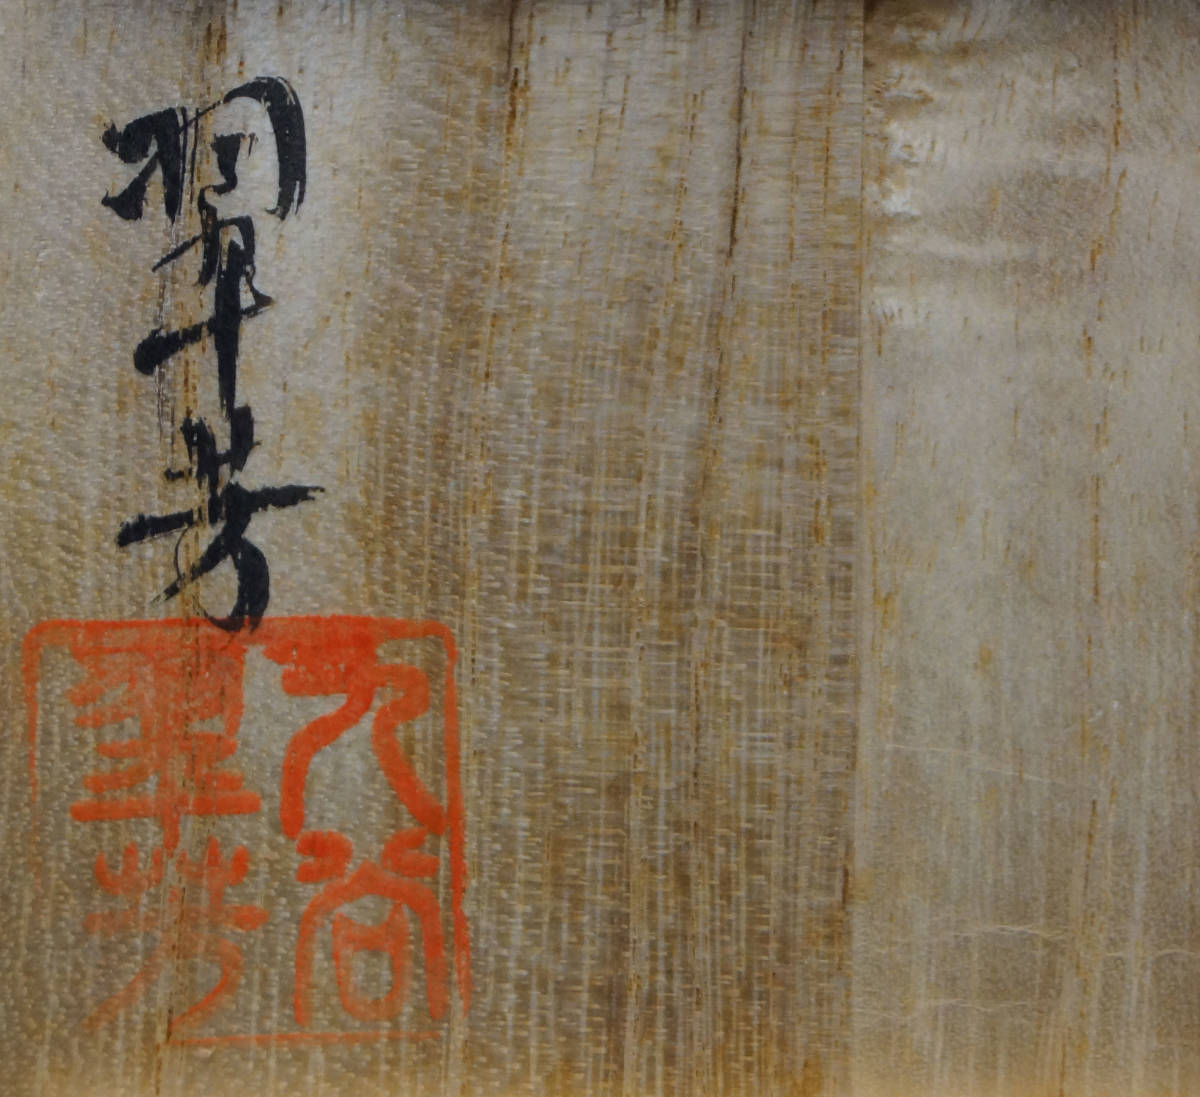 翠芳
九谷
翠芳